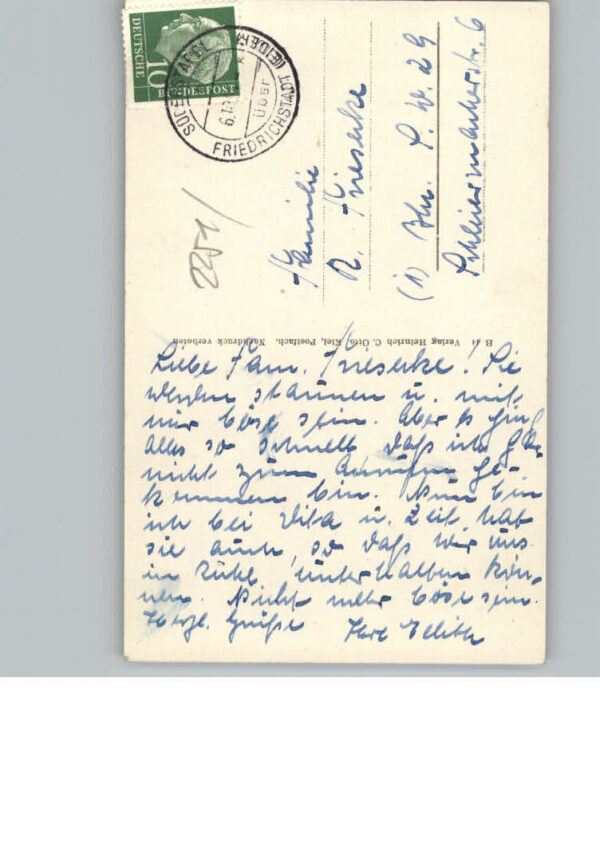 DEUTSCHE
10
BUNDESPOST
SÜDERSTAPEL
über
FRIEDRICHSTADT (EIDER)
2251/
Familie
R. Krieserke
(1) Bln. S. W. 29
Schleiermacherstr. 6
B 41 Verlag Heinrich C. Otto, Kiel, Postfach. Nachdruck verboten
Liebe Fam. Krieserke! Sie
werden staunen u. mit
mir böse sein. Aber es ging
alles so schnell daß ich gar
nicht zum Anrufen ge-
kommen bin. Nun bin
ich bei Dita u. Zeit hat
sie auch, so daß wir uns
in Ruhe unterhalten kön-
nen. Nicht mehr böse sein.
Herzl. Grüße Ihre Edith